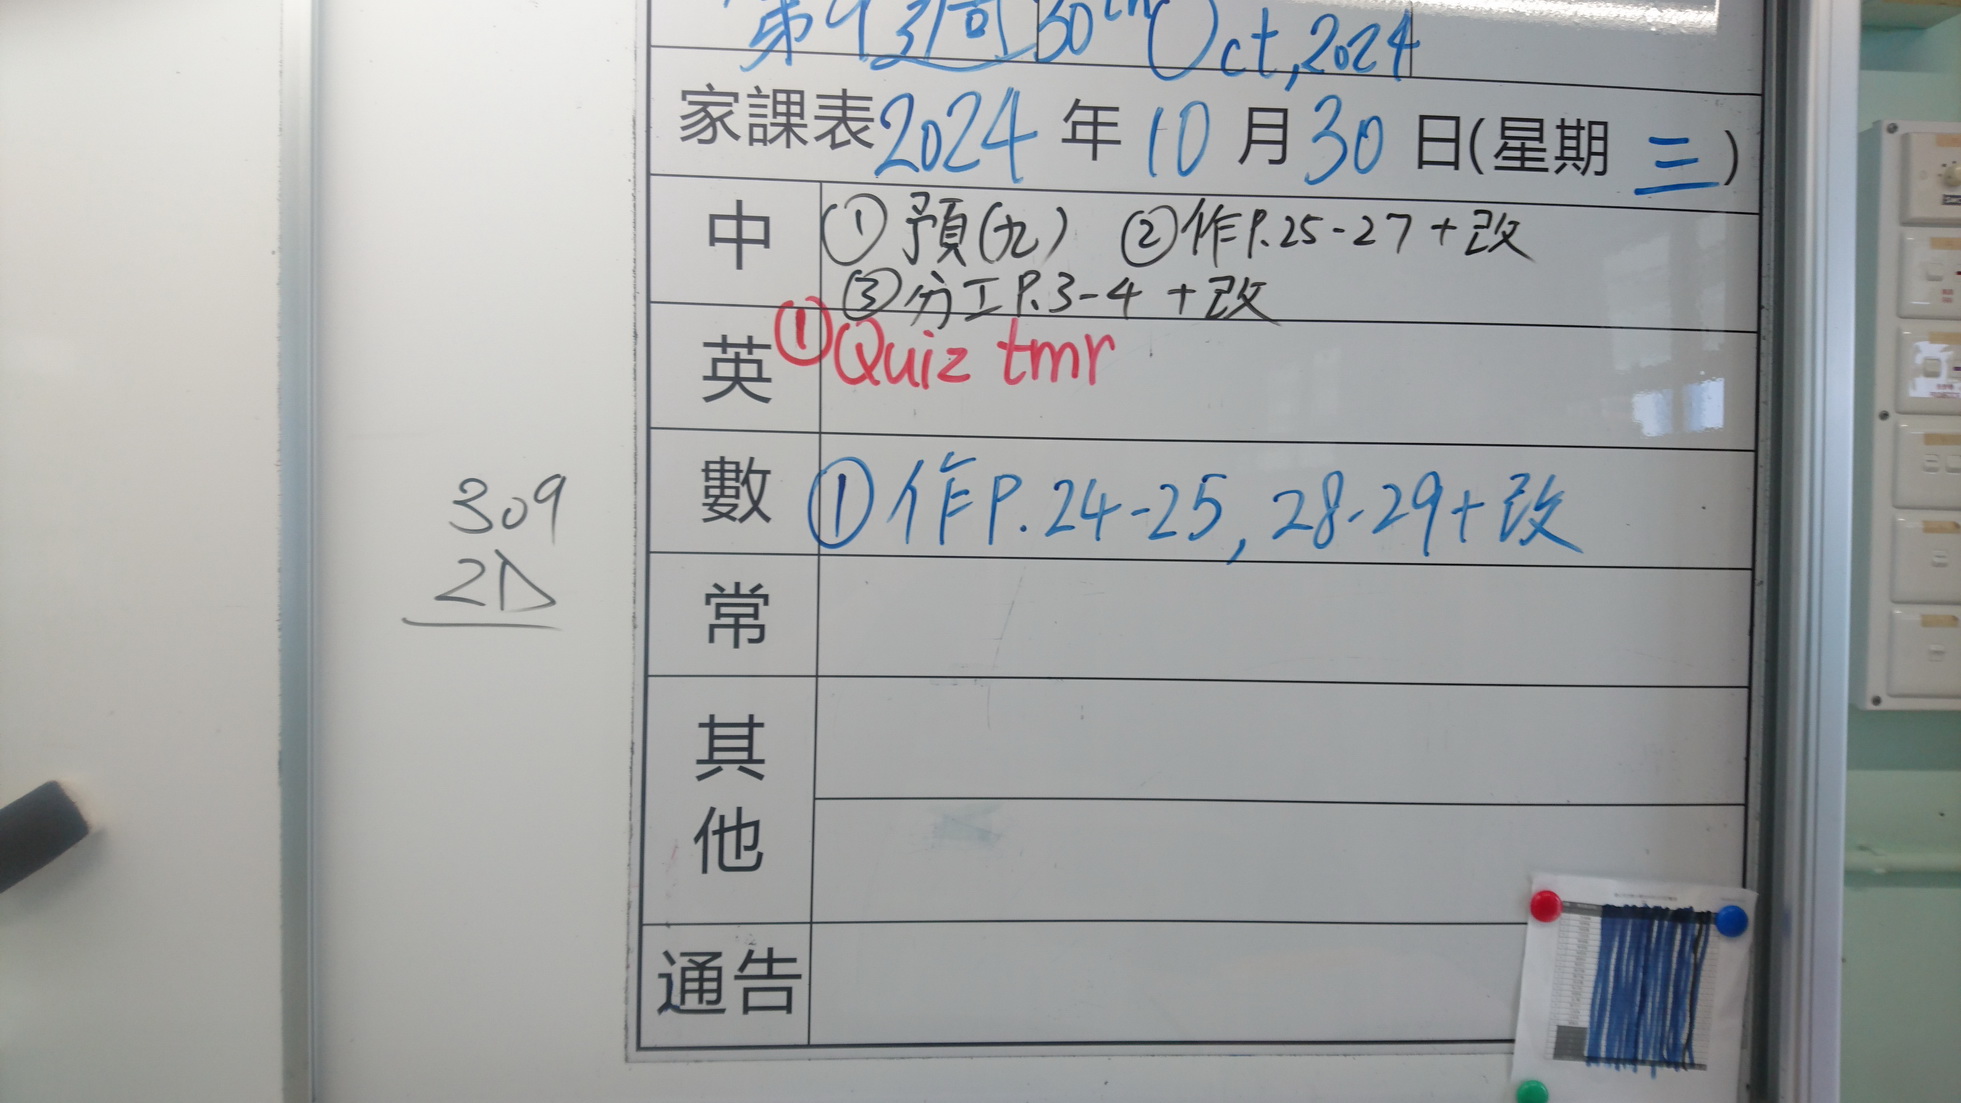 第9週 30th Oct, 2024
家課表 2024 年 10 月 30 日(星期 三)
中 ① 預(九) ② 作P.25-27 + 改
③ 分工P.3-4 + 改
英 ① Quiz tmr
數 ① 作P.24-25, 28-29 + 改
309
2D
常
其
他
通告